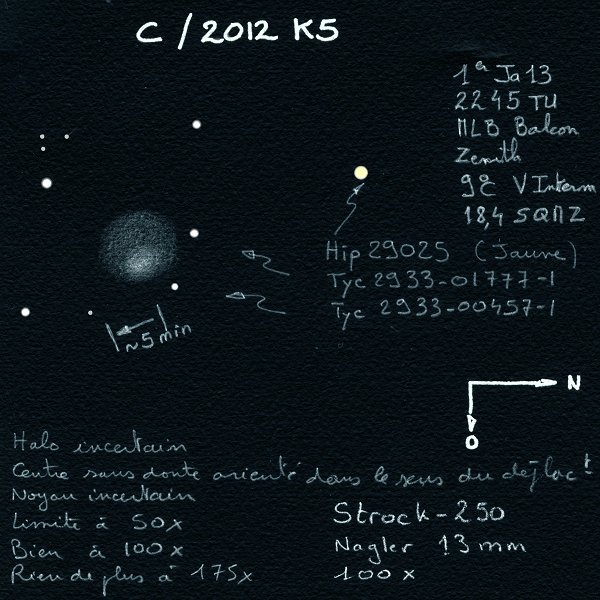 C / 2012 K5
1er Ja 13
2245 TU
MLB Balcon
Zenith
9°C V Interm
18,4 SQMZ
Hip 29025 (Jaune)
Tyc 2933-01777-1
Tyc 2933-00457-1
~5 min
N
O
Halo incertain
Centre sans doute orienté dans le sens du déplact
Noyau incertain
Limite à 50x
Bien à 100x
Rien de plus à 175x
Strock-250
Nagler 13 mm
100 x